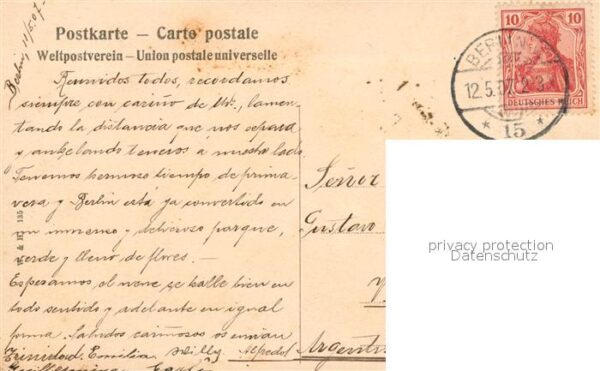 Berlin, 11/5.07.
Postkarte — Carto postale
Weltpostverein — Union postale universelle
Reunidos todos, recordamos
siempre con cariño de Ud., lamen-
tando la distancia que nos separa
y anhelando teneros a nuestro lado
Tenemos hermoso tiempo de prima-
vera y Berlin está ya convertido en
un inmenso y delicioso parque,
verde y lleno de flores.
Esperamos, el nene se halle bien en
todo sentido y adelante en igual
forma. Saludos cariñosos os envian
Trinidad, Emilia, Willy, Alfredo
10 10
DEUTSCHES REICH
BERLIN
12.5.07
* 15 *
135
Señor
Gustavo
Argentin
privacy protection
Datenschutz